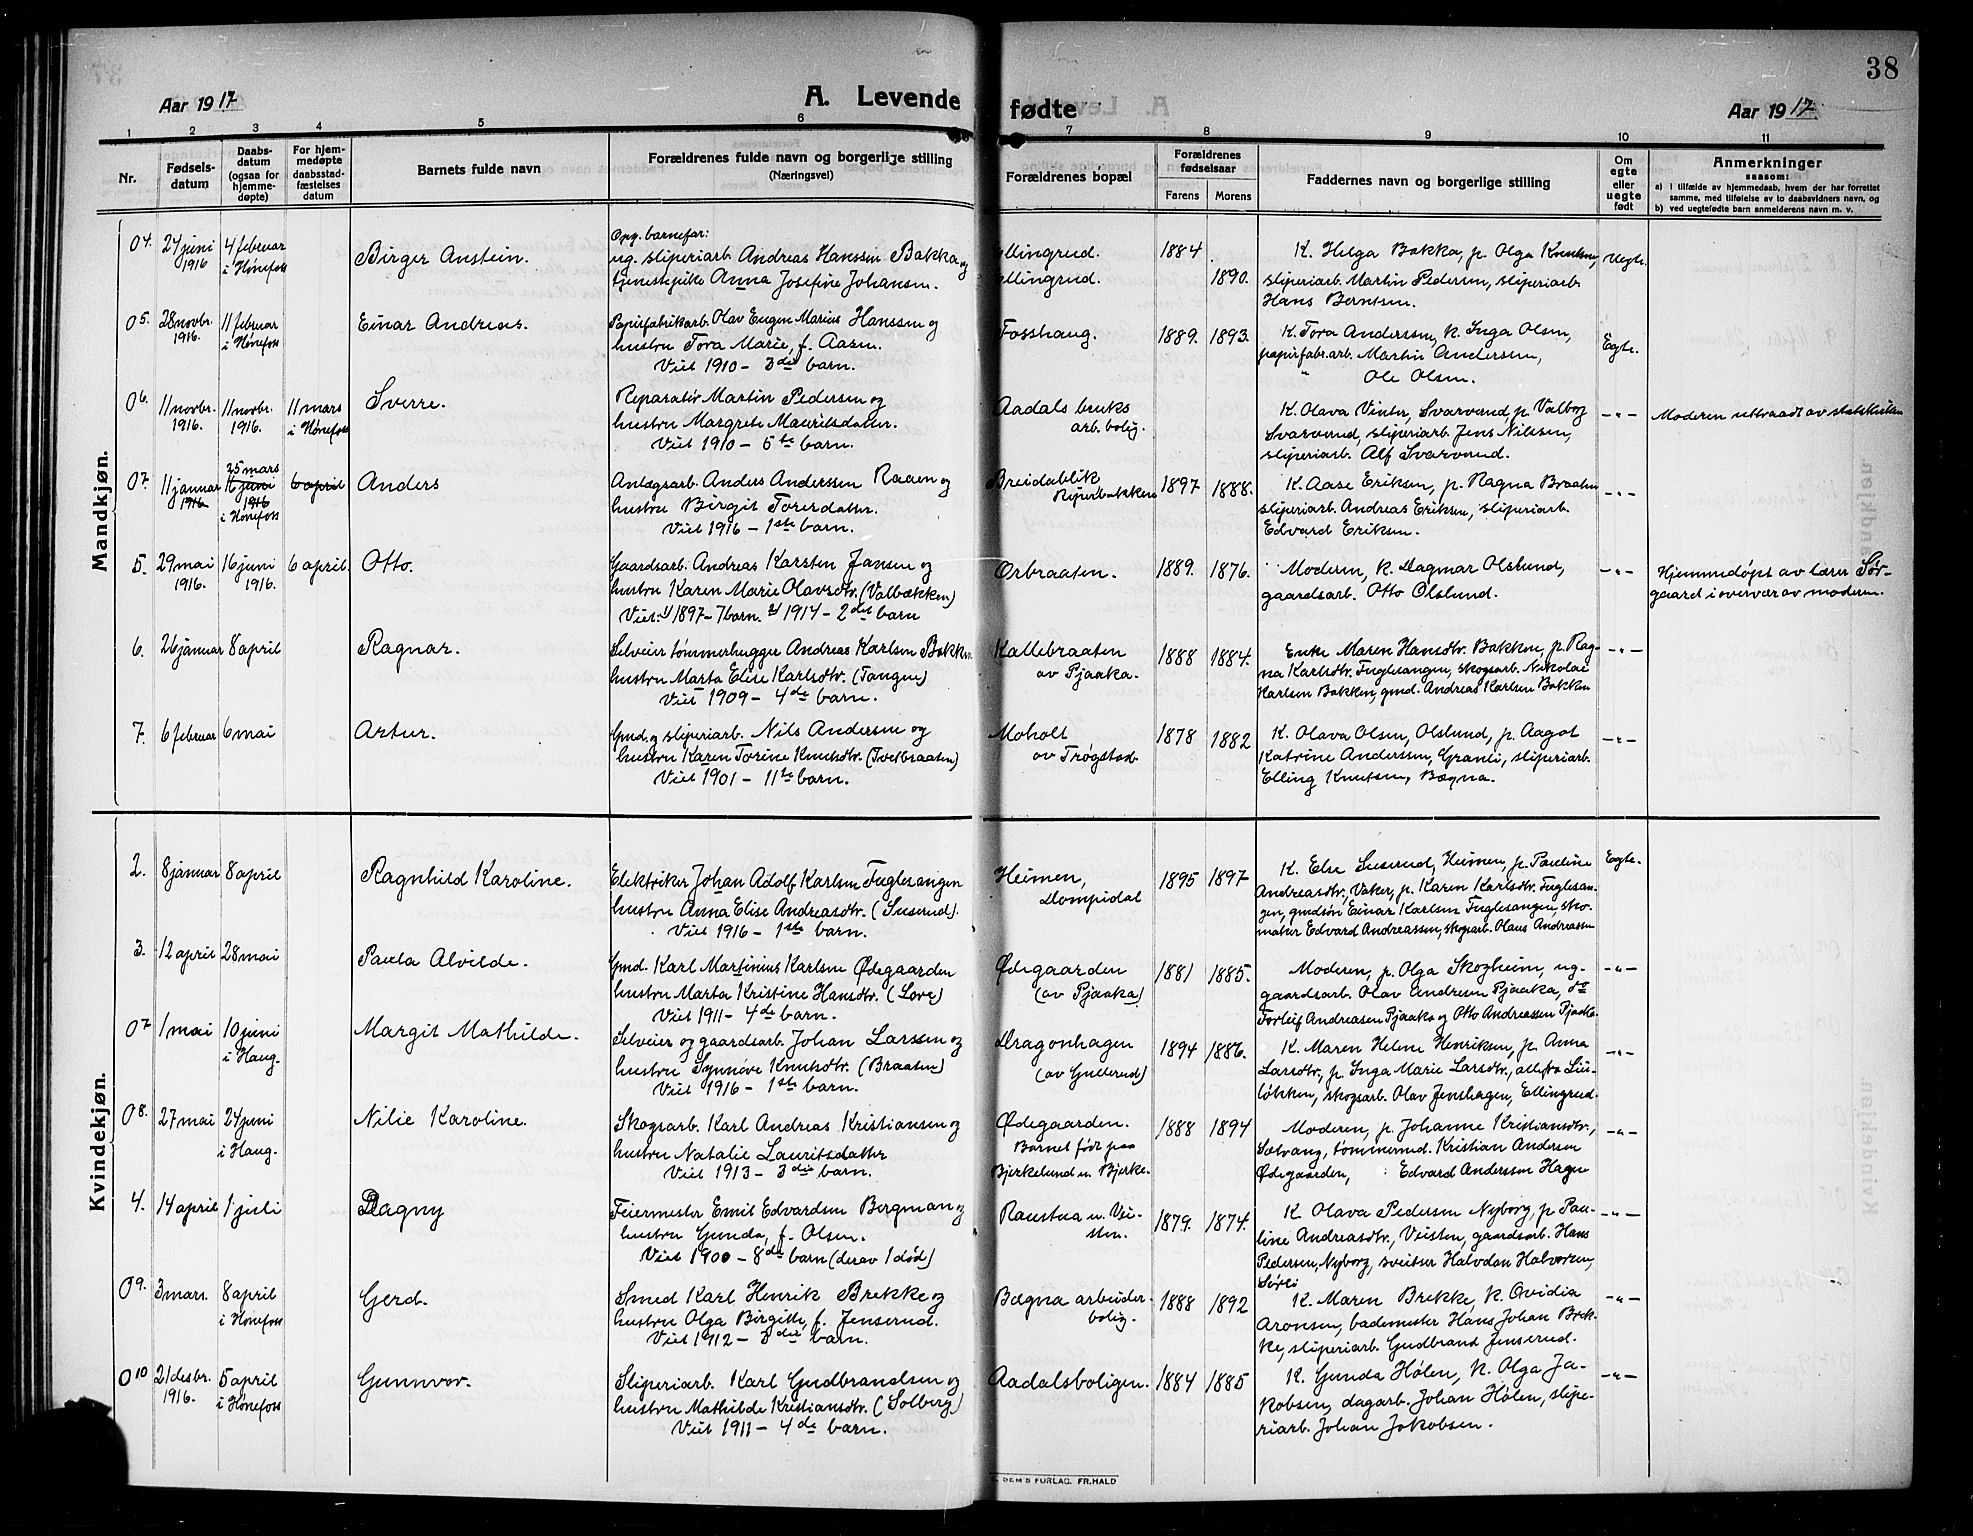 38
Aar 1917
A. Levende
fødte
Aar 1917
1 2 3 4 5 6 7 8 9 10 11
Nr.
Fødsels-
datum
Daabs-
datum
(ogsaa for
hjemme-
døpte)
For hjem-
medøpte
daabsstad-
fæstelses
datum
Barnets fulde navn
Forældrenes fulde navn og borgerlige stilling
(Næringsvei)
Forældrenes bopæl
Forældrenes
fødselsaar
Farens Morens
Faddernes navn og borgerlige stilling
Om
egte
eller
uegte
født
Anmerkninger
saasom:
a) i tilfælde av hjemmedaab, hvem der har forrettet
samme, med tilføielse av to daabsvidners navn, og
b) ved uegtefødte barn anmelderens navn m. v.
Mandkjøn.
04. 24 juni 1916
4 februar
i Hønefoss
Birger Anstein.
Opg. barnefar:
ug. sliperiarb. Andreas Hanssen Bakka og
tjenestepike Anna Josefine Johansen.
Ellingrud.
Ellingrud.
1884. 1890.
K. Helga Bakka, p. Olga Knutsen,
sliperiarb. Martin Pedersen, sliperiarb.
Hans Berntsen.
Uegte.
05. 28 novbr. 1916.
11 februar
i Hønefoss
Einar Andreas.
Papirfabrikarb. Olav Eugen Marius Hanssen og
hustru Tora Marie, f. Aasen.
Viet 1910 - 3die barn.
Fosshaug.
1889. 1893.
K. Tora Anderssen, K. Inga Olsen,
papirfabr.arb. Martin Anderssen,
" Ole Olsen.
Egte.
06. 11 novbr. 1916.
11 novbr. 1916.
11 mars
i Hønefoss
Sverre.
Reparatør Martin Pedersen og
hustru Margrete Mauritsdatter.
Viet 1910 - 5te barn.
Aadals bruks
arb. bolig.
K. Olava Vinter, Svarverud, p. Valborg
Svarverud, sliperiarb. Jens Nilsen,
sliperiarb. Alf Svarverud.
-"-
Moderen uttraadt av statskirken
07. 11 januar
1916
25 mars
11 juni
1916
i Hønefoss
6 april
Anders
Anlægsarb. Anders Anderssen Raaen og
hustru Birgit Toresdatter.
Viet 1916 - 1ste barn.
Breidablik
1897 1888.
K. Aase Eriksen, p. Ragna Braaten
sliperiarb. Andreas Eriksen, sliperiarb.
Edvard Eriksen.
-"-
5. 29 mai 1916.
16 juni 1916.
6 april
Otto.
Gaardsarb. Andreas Karsten Jansen og
hustru Karen Marie Olavsdtr. (Valbækken)
Viet 1) 1897 - 7 barn. 2) 1914 - 2det barn
Orbraaten.
1889. 1876.
Moderen, K. Dagmar Olslund,
gaardsarb. Otto Olslund.
-"-
Hjemmedøpt av lærer Sør-
gaard i overvær av moderen.
6. 26 januar 8 april
Ragnar.
Selveier tømmerhugger Andreas Karlsen Bakken
hustru Marta Elise Karlsdtr. (Tangen)
Viet 1909 - 4de barn.
Kallebraaten
av Pjaaka.
1888 1884.
Enke Maren Hansdtr. Bakken, p. Rag-
na Karlsdtr. Fuglesangen, skogsarb. Nikolai
Karlsen Bakken, gmd. Andreas Karlsen Bakken
-"-
7. 6 februar 6 mai
Artur.
Gmd. og sliperiarb. Nils Andersen og
hustru Karen Torine Knutsdtr. (Tvetbraaten)
Viet 1901 - 11te barn.
Moholt
av Trøgstad
1878 1882
K. Olava Olsen, Olslund, p. Aagot
Katrine Andersen, Granli, sliperiarb.
Elling Knutsen, Bægna.
-"-
Kvindekjøn.
2. 8 januar 8 april
Ragnhild Karoline.
Elektriker Johan Adolf Karlsen Fuglesangen
hustru Anna Elise Andreasdtr. (Suserud).
Viet 1916 - 1ste barn.
Heimen,
Dompidal
1895 1897
K. Else Suserud, Heimen, p. Pauline
Andreasdtr., Vaker, p. Karen Karlsdtr. Fuglesan-
gen, gmdsøn Einar Karlsen Fuglesangen, sko-
maker Edvard Andreassen, skogsarb. Olaus Andreassen
Egte.
3. 12 april 28 mai
Paula Alvilde.
Gmd. Karl Martinius Karlsen Ødegaarden
hustru Marta Kristine Hansdtr. (Lore)
Viet 1911 - 4de barn.
Ødegaarden
(av Pjaaka)
1881 1885.
Moderen, p. Olga Skogheim, ug.
gaardsarb. Olav Andresen Pjaaka, do
Torleif Andreasen Pjaaka og Otto Andreassen Pjaaka.
-"-
07 1 mai 10 juni
i Haug.
Margit Mathilde.
Selveier og gaardsarb. Johan Larssen og
hustru Synnøve Knutsdtr. (Braaten)
Viet 1916 - 1ste barn.
Dragonhagen
(av Gullerud)
1894 1886.
K. Maren Helene Henriksen, p. Anna
Larsdtr., p. Inga Marie Larsdtr., alle fra Lis-
løkken, skogsarb. Olav Jenshagen, Ellingrud.
-"-
08. 27 mai 24 juni
i Haug.
Nilie Karoline.
Skogsarb. Karl Andreas Kristiansen og
hustru Natalie Lauritsdatter
Viet 1913 - 3die barn.
Ødegaarden.
Barnet født paa
Bjerkelund u. Bjerke.
1888 1894
Moderen, p. Johanne Kristiansdtr.,
Solvang, tømmermd. Kristian Andersen
Ødegaarden, Edvard Anderssen Hagen
-"-
4. 14 april 1 juli
Dagny
Feiermester Emil Edvardsen Bergman og
hustru Gunda, f. Olsen.
Viet 1900 - 8de barn (derav 1 død)
Raustua u. Vei-
sten.
1879. 1874.
K. Olava Pedersen Nyborg, p. Pau-
line Andreasdtr., Veisten, gaardsarb. Hans
Pedersen, Nyborg, sveitser Halvdan Halvorsen,
-"-
09. 3 mars. 8 april
i Hønefoss
Gerd.
Smed Karl Henrik Brekke og
hustru Olga Birgitte, f. Jenserud.
Viet 1912 - 3die barn.
Bægna arbeider-
bolig.
1888 1892
K. Maren Brekke, K. Ovidia
Aronsen, bademester Hans Johan Brek-
ke, sliperiarb. Gudbrand Jenserud.
-"-
010 21 desbr. 1916.
5 april
i Hønefoss
Gunnvor.
Sliperiarb. Karl Gudbrandsen og
hustru Mathilde Kristiansdtr. (Solberg)
Viet 1911 - 4de barn.
Aadalsboligen.
1884 1885
K. Gunda Hølen, K. Olga Ja-
kobsen, dagarb. Johan Hølen, slipe-
riarb. Johan Jakobsen.
-"-
DEM'S FORLAG. FR.HALD